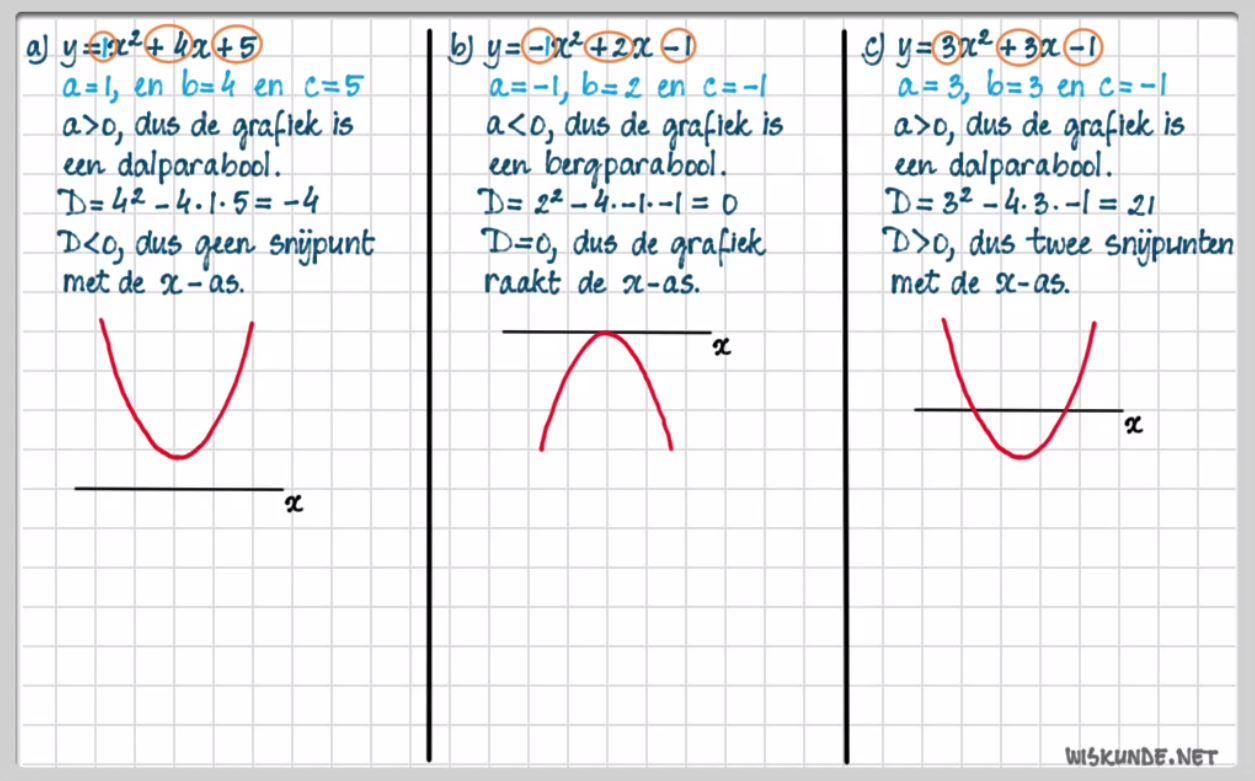 a) y=1x²+4x+5
a=1, en b=4 en c=5
a>0, dus de grafiek is
een dalparabool.
D=4²-4·1·5=-4
D<0, dus geen snijpunt
met de x-as.
x
b) y=-1x²+2x-1
a=-1, b=2 en c=-1
a<0, dus de grafiek is
een bergparabool.
D=2²-4·-1·-1=0
D=0, dus de grafiek
raakt de x-as.
x
c) y=3x²+3x-1
a=3, b=3 en c=-1
a>0, dus de grafiek is
een dalparabool.
D=3²-4·3·-1=21
D>0, dus twee snijpunten
met de x-as.
x
WISKUNDE.NET